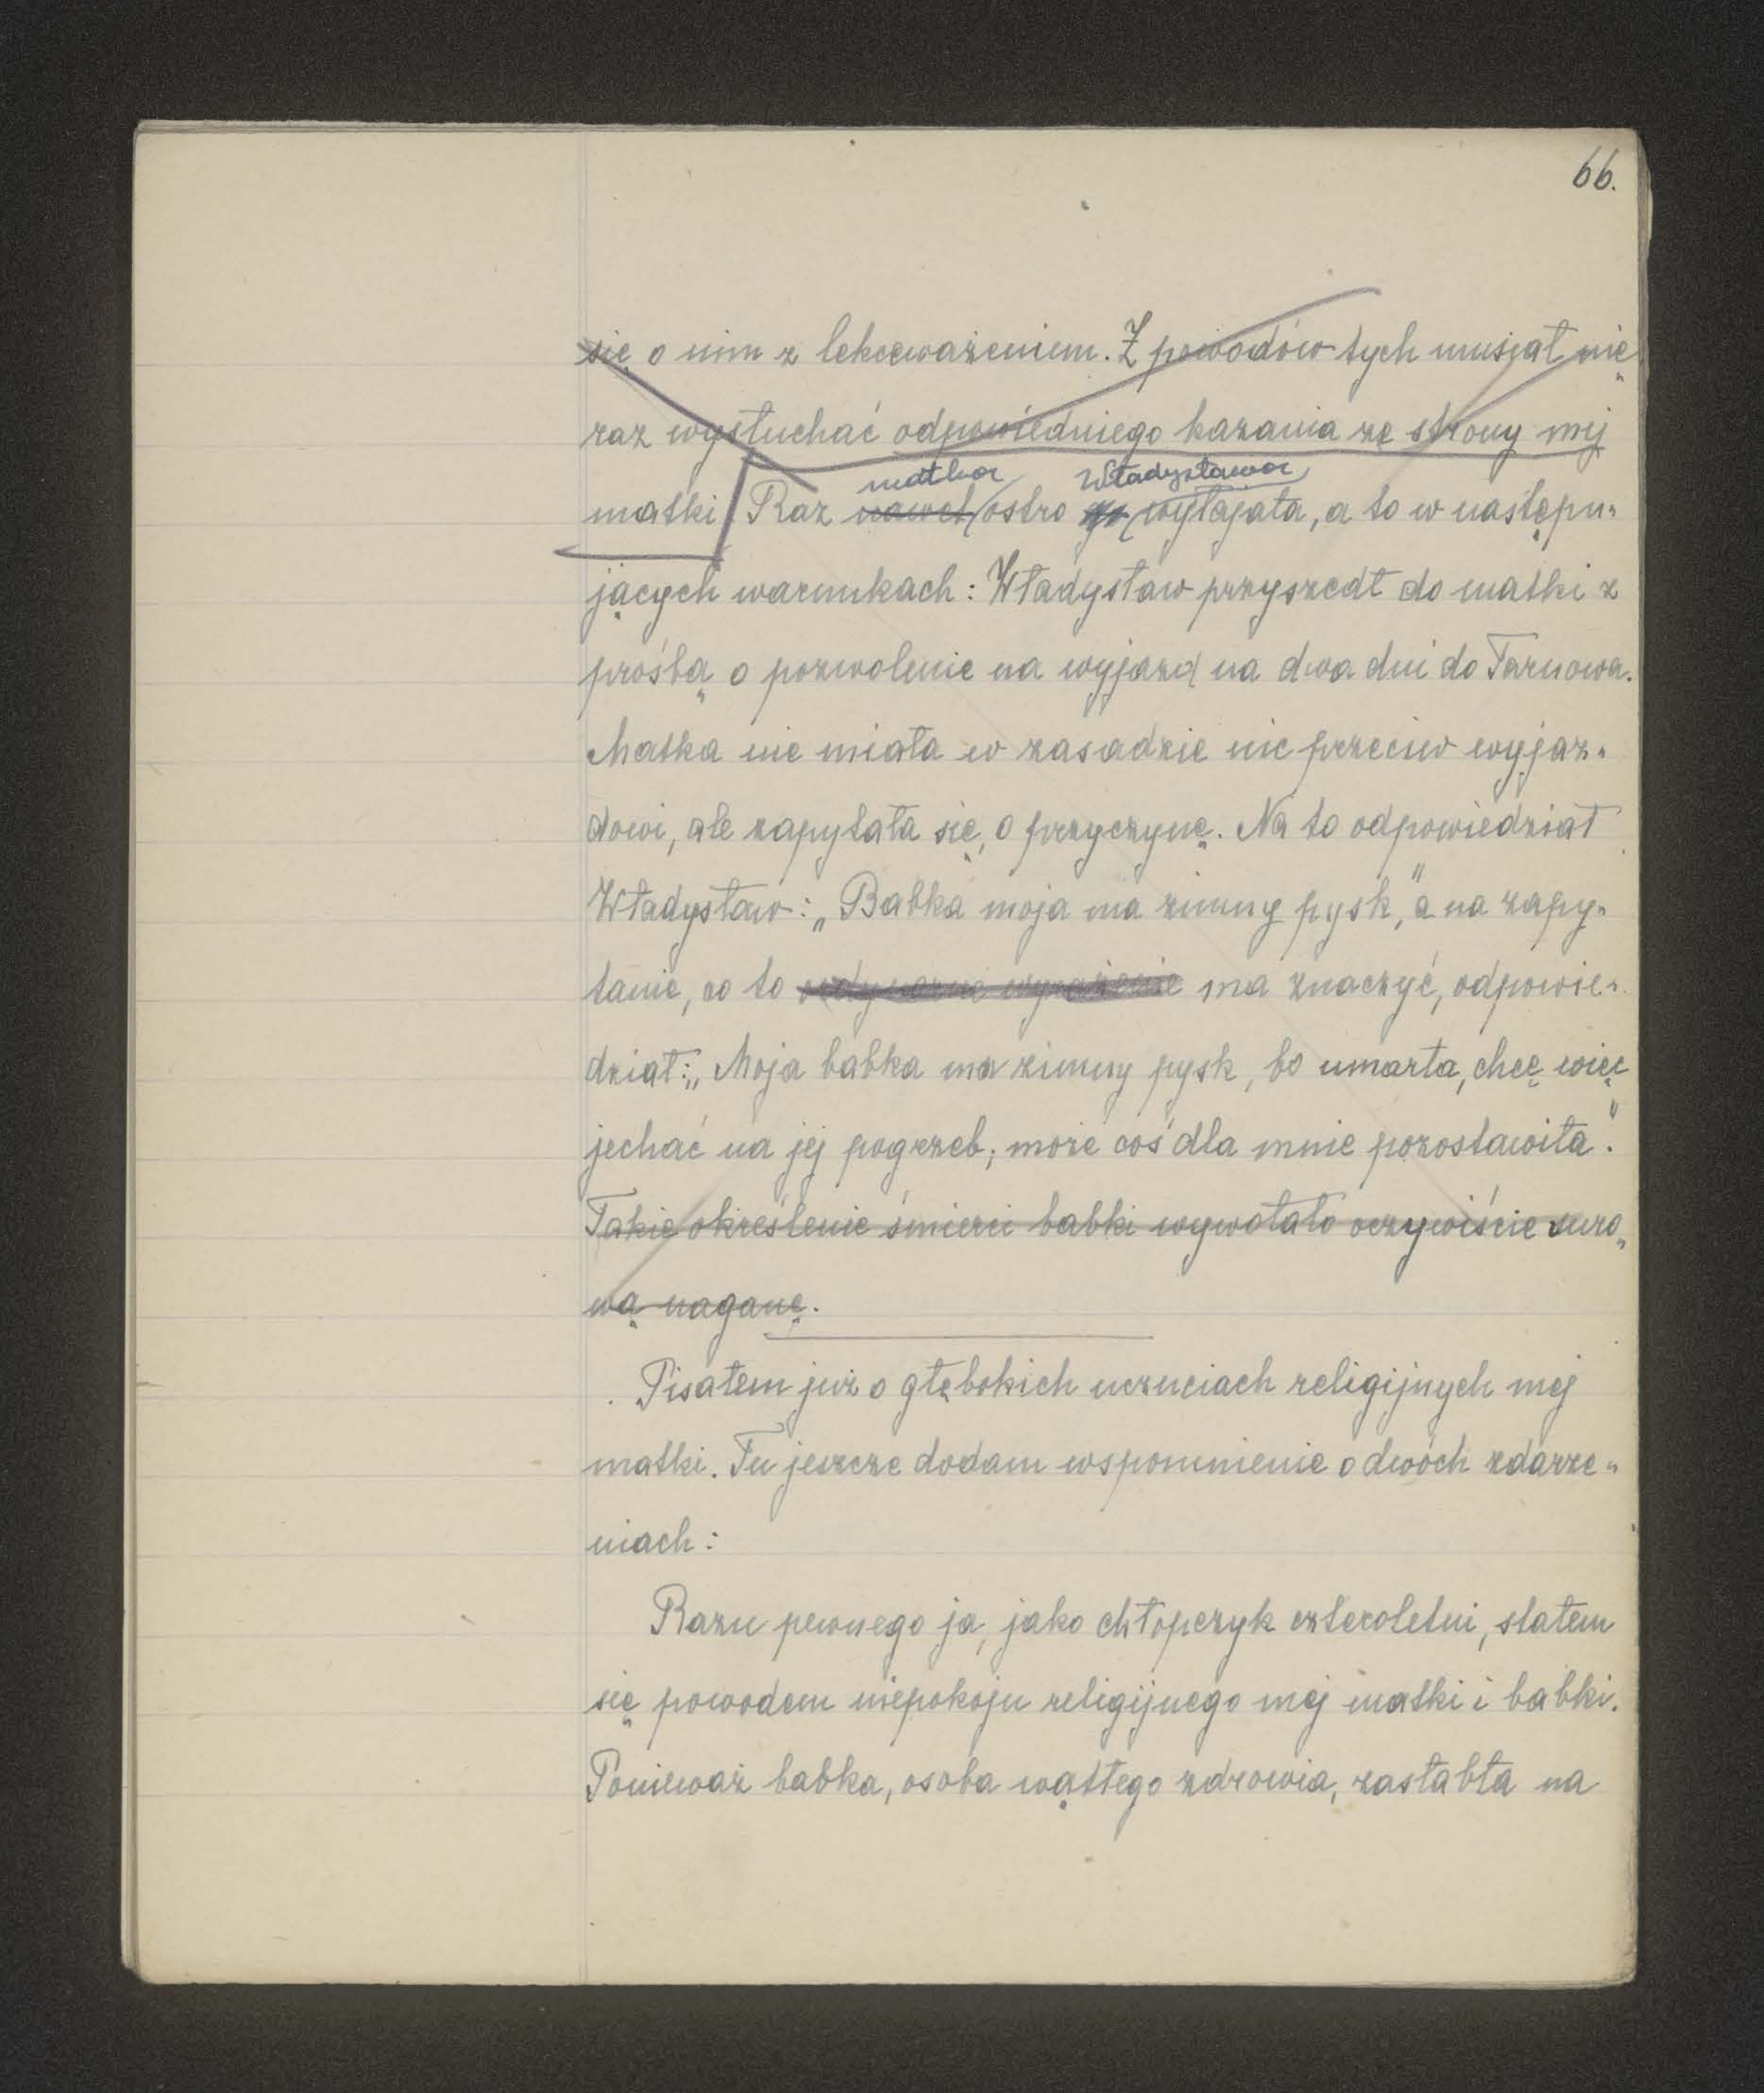 66.
się o nim z lekceważeniem. Z powodów tych musiał nie
raz wysłuchać odpowiedniego kazania ze strony mej
matka Władysława
matki. Raz nawet ostro go wyłajała, a to w następu-
jących warunkach: Władysław przyszedł do matki z
prośbą o pozwolenie na wyjazd na dwa dni do Tarnowa.
Matka nie miała w zasadzie nic przeciw wyjaz-
dowi, ale zapytała się, o przyczynę. Na to odpowiedział
Władysław: „Babka moja ma zimny pysk," a na zapy-
tanie, co to ordynarne wyrażenie ma znaczyć, odpowie-
dział: „Moja babka ma zimny pysk, bo umarła, chcę więc
jechać na jej pogrzeb; może coś dla mnie pozostawiła".
Takie określenie śmierci babki wywołało oczywiście suro-
wą naganę.
Pisałem już o głębokich uczuciach religijnych mej
matki. Tu jeszcze dodam wspomnienie o dwóch zdarze-
niach:
Razu pewnego ja, jako chłopczyk czteroletni, stałem
się powodem niepokoju religijnego mej matki i babki.
Ponieważ babka, osoba wątłego zdrowia, zasłabła na